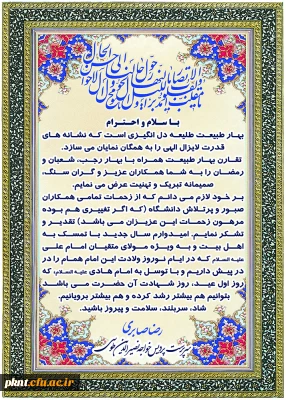 با سلام و احترام
بهار طبیعت طلیعه دل انگیزی است که نشانه های
قدرت لایزال الهی را به همگان نمایان می سازد.
تقارن بهار طبیعت همراه با بهار رجب، شعبان و
رمضان را به شما همکاران عزیز و گران سنگ،
صمیمانه تبریک و تهنیت عرض می نمایم.
بر خود لازم می دانم که از زحمات تمامی همکاران
صبور و پرتلاش دانشگاه (که اگر تغییری هم بوده
مرهون زحمات این عزیزان می باشد) تقدیر و
تشکر نمایم. امیدوارم سال جدید با تمسک به
اهل بیت و به ویژه مولای متقیان امام علی
علیه السلام که در ایام نوروز ولادت این امام همام را در
پیش داریم و با توسل به امام هادی علیه السلام، که
روز اول عید، روز شهادت آن حضرت می باشد
بتوانیم هم بیشتر رشد کرده و هم بیشتر برویانیم.
شاد، سربلند، سلامت و پیروز باشید.
رضا صابری
سرپرست پردیس خواجه نصیرالدین طوسی
pknt.cfu.ac.ir